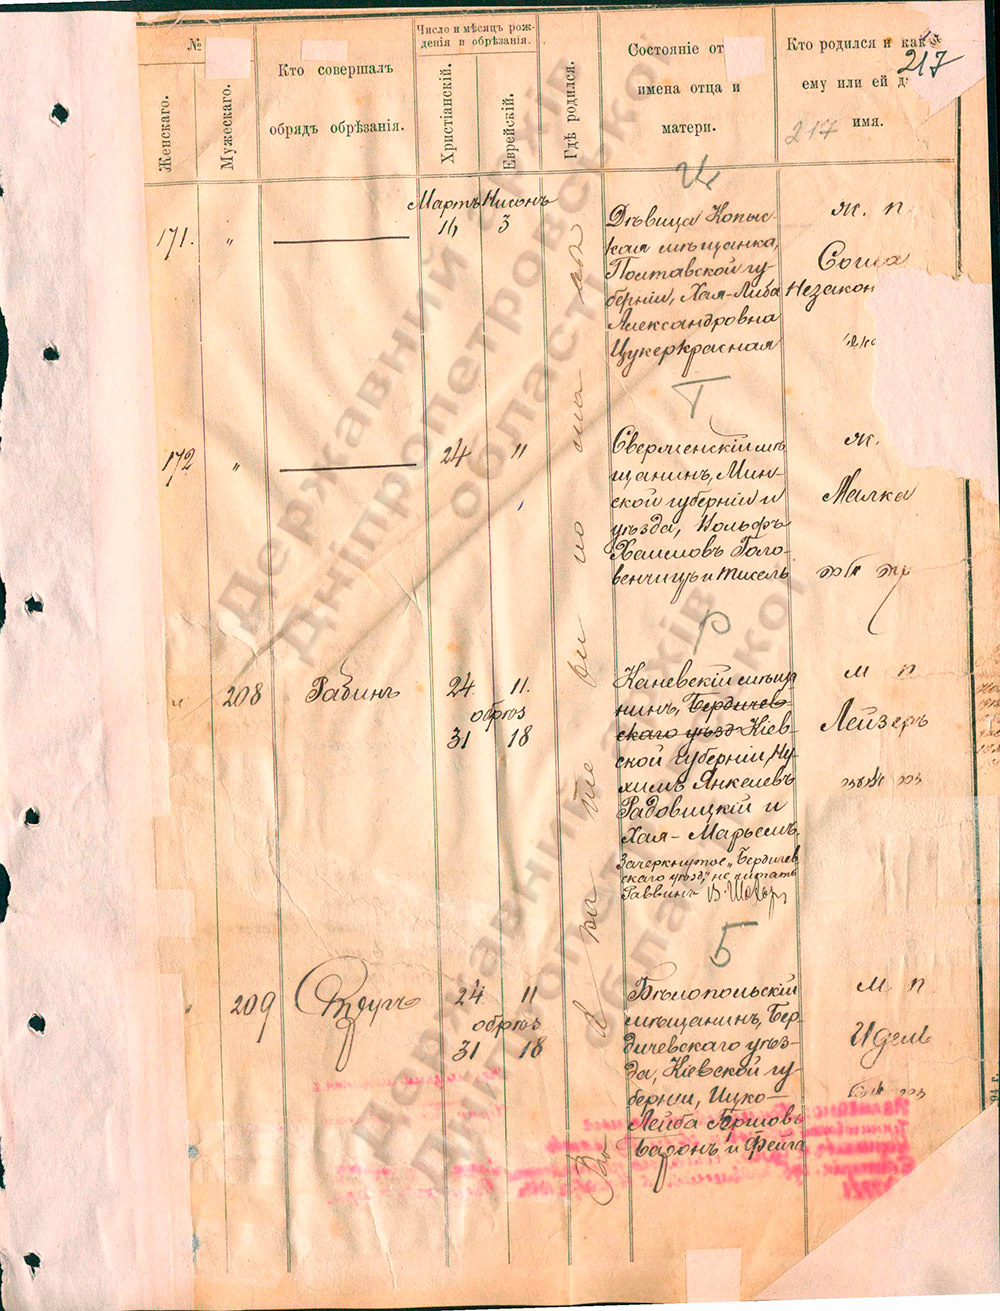 217
№
Женскаго.
Мужескаго.
Кто совершалъ
обрядъ обрѣзанія.
Число и мѣсяцъ рож-
денія и обрѣзанія.
Христіанскій.
Еврейскій.
Гдѣ родился.
Состояніе от
имена отца и
матери.
Кто родился и как
ему или ей д
имя.
217
Ц
171.
"
Мартъ Нисонъ
16 3
Дѣвица Копыс-
кая мѣщанка,
Полтавской гу-
берніи, Хая-Либа
Александровна
Цукеркрасная
ж. п.
Сошa
Незакон
Г
172
"
24 11
Сверженскій мѣ-
щанинъ, Мин-
ской губерніи и
уѣзда, Вольфъ
Хаимовъ Голо-
венчицъ и Тисель
ж.
Малка
Р
208
Рабинъ
24. 11.
обрѣз
31 18
Каневскій мѣщ-
нинъ, Бердичев
скаго уѣзд Кіев-
ской губерніи, Ну-
химъ Янкелевъ
Радовицкій и
Хая-Марьемъ.
Зачеркнутое „Бердичев
скаго уѣзд" не читать
Раввинъ
м п
Лейзеръ
Б
209
24 11
обрѣз
31 18
Бѣлопольскій
мѣщанинъ, Бер-
дичевскаго уѣз-
да, Кіевской гу-
берніи, Ицко-
Лейба Гершовъ
Баронъ и Фейга
м п
Идель
Державний архів
Дніпропетровської
області
Державний архів
Дніпропетровської
області